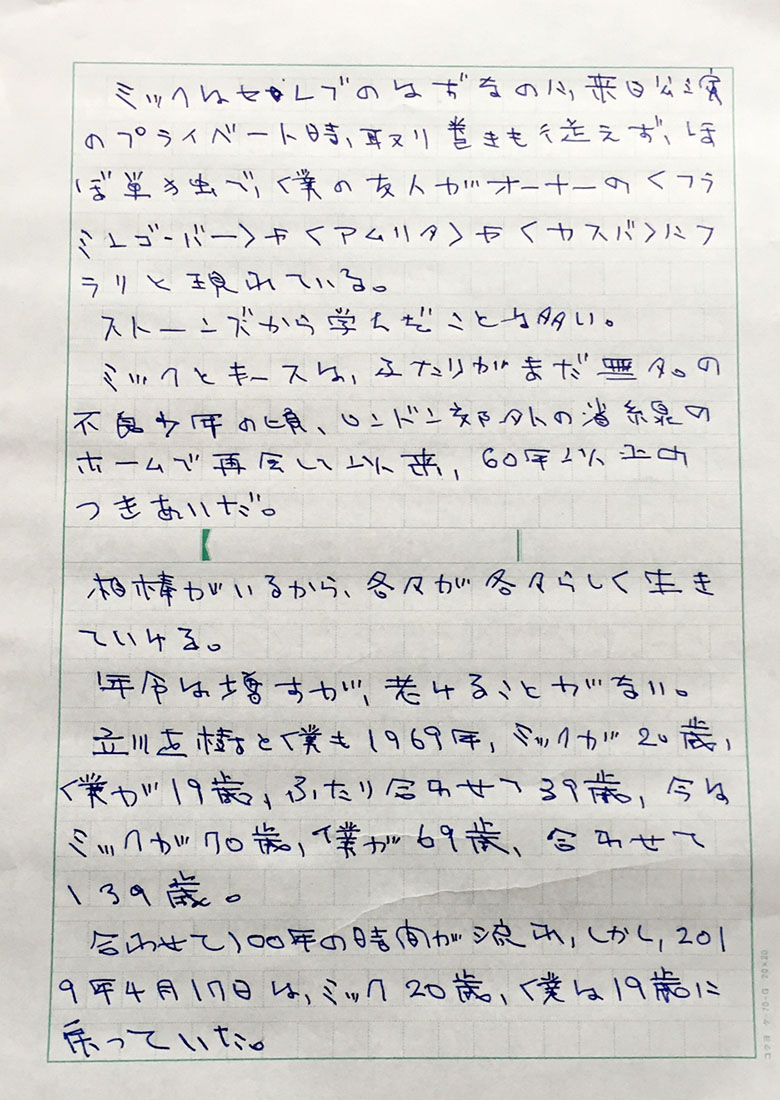 ミックはセレブのはずなのに、来日公演
のプライベート時、取り巻きも従えず、ほ
ぼ単独で、僕の友人がオーナーの〈フラ
ミンゴ・バー〉や〈アムリタ〉や〈カスバ〉にフ
ラリと現れている。
ストーンズから学んだことは多い。
ミックとキースは、ふたりがまだ無名の
不良少年の頃、ロンドン郊外の省線の
ホームで再会して以来、60年以上の
つきあいだ。
相棒がいるから、各々が各々らしく生き
ていける。
年令は増すが、老けることがない。
立川直樹と僕も1969年、ミックが20歳、
僕が19歳、ふたり合わせて39歳、今は
ミックが70歳、僕が69歳、合わせて
139歳。
合わせて100年の時間が流れ、しかし、201
9年4月17日は、ミック20歳、僕は19歳に
戻っていた。
コクヨ ケ-70-G 20×20